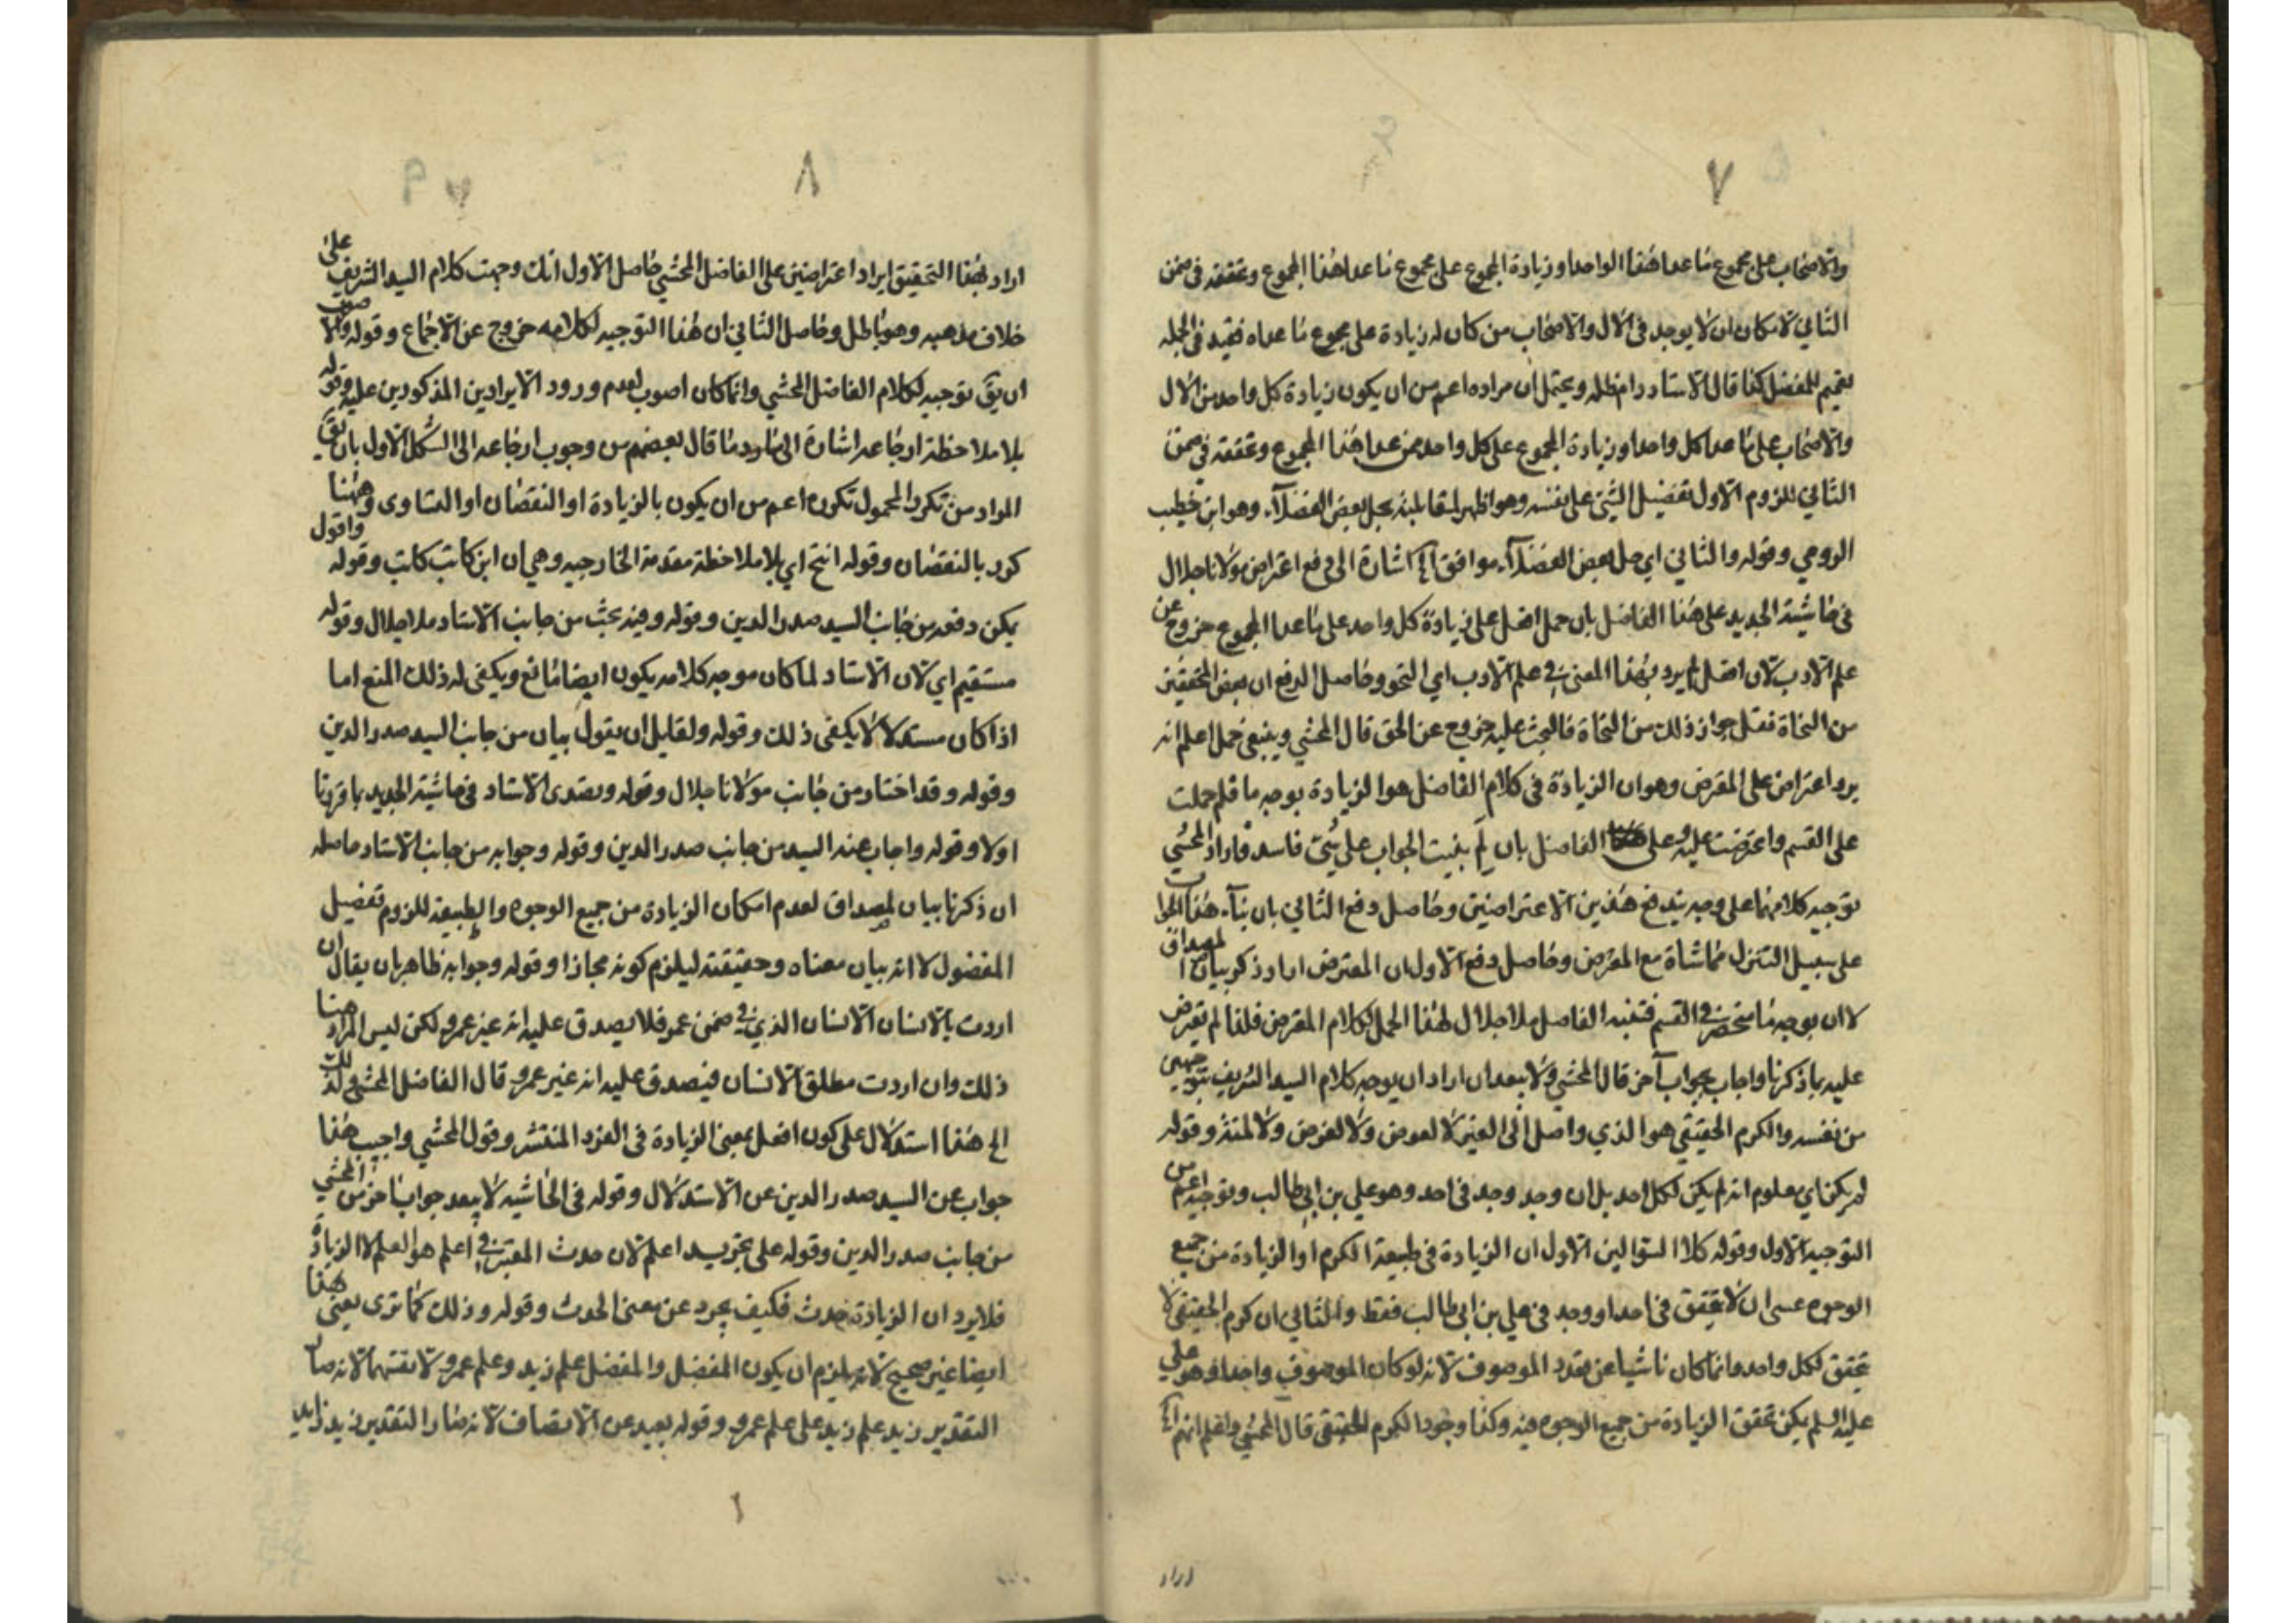 ٧
والاصحاب على مجموع ما عدا هذا الواحد او زيادة المجموع على مجموع ما عدا هذا المجموع وتحققه في ضمن
الثاني لامكان ان لا يوجد في الآل والاصحاب من كان له زيادة على مجموع ما عداه فقيد في الجملة
تعميم للمفضل كذا قال الاستاد دام ظله ويحتمل ان مراده اعم من ان يكون زيادة كل واحد من الآل
والاصحاب على ما عدا كل واحد او زيادة المجموع على كل واحد ممن عدا هذا المجموع وتحققه في ضمن
الثاني للزوم الاول تفضيل الشئ على نفسه وهو اظهر لمقابلته بحمل بعض الفضلاء وهو ابن خطيب
الرومي وقوله والثاني اي حمل بعض الفضلاء موافق اشارة الى دفع اعتراض مولانا جلال
في حاشية الجديد على هذا الفاضل بان حمل افعل على زيادة كل واحد على ما عدا المجموع خروج عن
علم الادب لان افعل لم يرد بهذا المعنى في علم الادب اي النحو وحاصل الدفع ان بعض المحققين
من النحاة نقل جواز ذلك من النحاة فالبحث عليه خروج عن الحق قال المحشي وينبغي حمل اعلم انه
يرد اعتراض على المعترض وهو ان الزيادة في كلام الفاضل هو الزيادة بوجه ما فلم حملت
على القسم واعترضت عليه وعلى الفاضل بان لم بنيت الجواب على شئ فاسد فاراد المحشي
توجيه كلامهما على وجه يندفع هذين الاعتراضين وحاصل دفع الثاني بان بناء هذا الجواب
على سبيل التنزل مماشاة مع المعترض وحاصل دفع الاول ان المعترض اراد ذكر بيان المصداق
لا ان بوجه ما منحصر في القسم فتنبه الفاضل ملا جلال لهذا الحمل لكلام المعترض فلذا لم يعترض
عليه بما ذكرنا واجاب بجواب آخر قال المحشي ولا يبعد ان اراد ان يوجه كلام السيد الشريف بتوجيهين
من نفسه والكرم الحقيقي هو الذي واصل الى الغير لا لعوض ولا لغرض ولا لمنة وقوله
لم يكن اي معلوم انه لم يكن لكل احد بل ان وجد وجد في احد وهو علي بن ابي طالب وتوجيه اعم من
التوجيه الاول وقوله كلا السؤالين الاول ان الزيادة في طبيعة الكرم او الزيادة من جميع
الوجوه عسى ان لا يتحقق في احد او وجد في علي بن ابي طالب فقط والثاني ان كرم الحقيقي لا
تحقق لكل واحد وانما كان ناشيا عن تعدد الموصوف لانه لو كان الموصوف واحدا وهو علي
عليه السلم يمكن تحقق الزيادة من جميع الوجوه فيه وكذا وجود الكرم الحقيقي قال المحشي واعلم انهم
اراد
٨
اراد بهذا التحقيق ايراد اعتراضين على الفاضل المحشي حاصل الاول انك وجهت كلام السيد الشريف على
خلاف مذهبه وهو باطل وحاصل الثاني ان هذا التوجيه لكلامه خروج عن الاجماع وقوله والاصوب
ان يق توجيه لكلام الفاضل المحشي وانما كان اصوب لعدم ورود الايرادين المذكورين عليه وقوله
بلا ملاحظة ارجاعه اشارة الى ما رد ما قال بعضهم من وجوب ارجاعه الى الشكل الاول بان يق
المراد من تكرر المحمول تكرره اعم من ان يكون بالزيادة او النقصان او التساوى وههنا
كرر بالنقصان وقوله انتج اي بلا ملاحظة مقدمة الخارجيه وهي ان ابن كاتب كاتب وقوله واقول
يمكن دفعه من جانب السيد صدر الدين وقوله وفيه بحث من جانب الاستاد ملا جلال وقوله
مستقيم اي لان الاستاد لما كان موجه كلامه يكون ايضا مانع ويكفى له ذلك المنع اما
اذا كان مستدلا لا يكفى ذلك وقوله ولقايل ان يقول بيان من جانب السيد صدر الدين
وقوله وقد اختار من جانب مولانا جلال وقوله وتصدى الاستاد في حاشية الجديد بما قررنا
اولا وقوله واجاب عنه السيد من جانب صدر الدين وقوله وجوابه من جانب الاستاد حاصله
ان ذكرنا بيان لمصداق لعدم امكان الزيادة من جميع الوجوه والطبيعة للزوم تفضيل
المفضول لا انه بيان معناه وحقيقته ليلزم كونه مجازا وقوله وجوابه ظاهر بان يقال ان
اردت بالانسان الانسان الذي في ضمن عمرو فلا يصدق عليه انه غير عمرو لكن ليس المراد هنا
ذلك وان اردت مطلق الانسان فيصدق عليه انه غير عمرو قال الفاضل المحشي لذلك
الخ هذا استدلال على كون افعل بمعنى الزيادة في الفرد المنتشر وقول المحشي واجيب هذا
جواب عن السيد صدر الدين عن الاستدلال وقوله في الحاشيه لا يبعد جواب آخر من المحشي
من جانب صدر الدين وقوله على تجريد اعلم لان حدث المعتبر في اعلم هو العلم لا الزيادة
فلا يرد ان الزيادة حدث فكيف يجرد عن معنى الحدث وقوله وذلك كما ترى يعنى هذا
ايضا غير صحيح لانه يلزم ان يكون المفضل والمفضل علم زيد وعلم عمرو لا نفسهما لانه صار
التقدير زيد علم زيد على علم عمرو وقوله بعيد عن الانصاف لانه صار التقدير زيد زايد